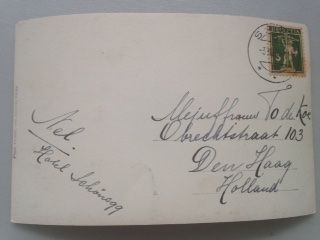 HELVETIA
Mejuffrouw To de Koe
Obrechtstraat 103
Den Haag
Holland
Nel
Hotel Schönegg